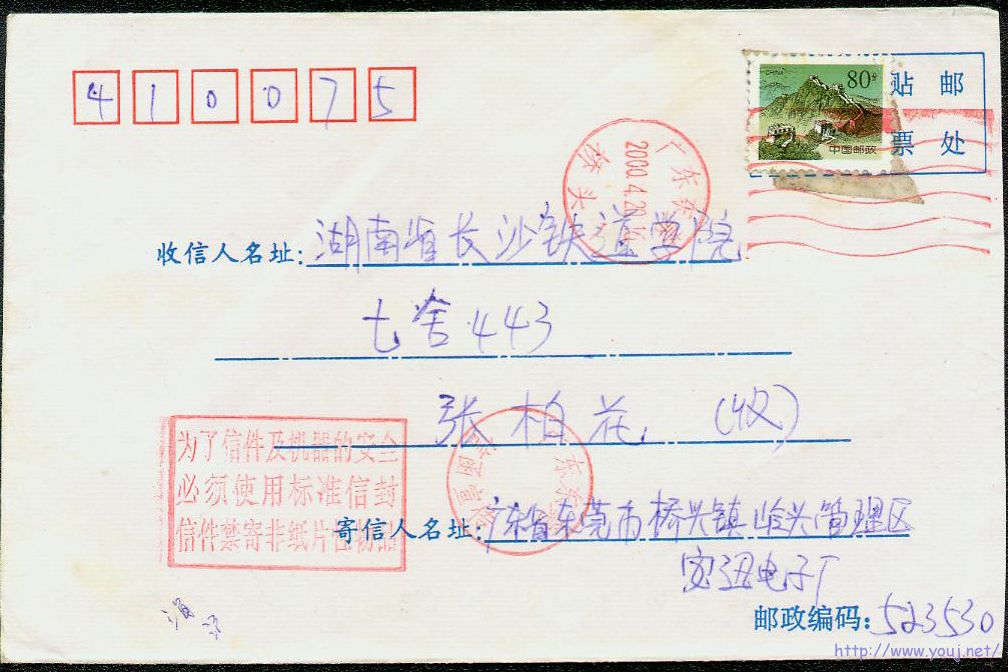 410075
CHINA
80分
中国邮政
贴 邮
票 处
广东东莞
2000.4.20.16
桥头
收信人名址：湖南省长沙铁道学院
七舍443
张柏花（收）
为了信件及机器的安全
必须使用标准信封
信件禁寄非纸片性物品
寄信人名址：广东省东莞市桥头镇岭头管理区
电子厂
邮政编码：523530
http://www.youj.net/